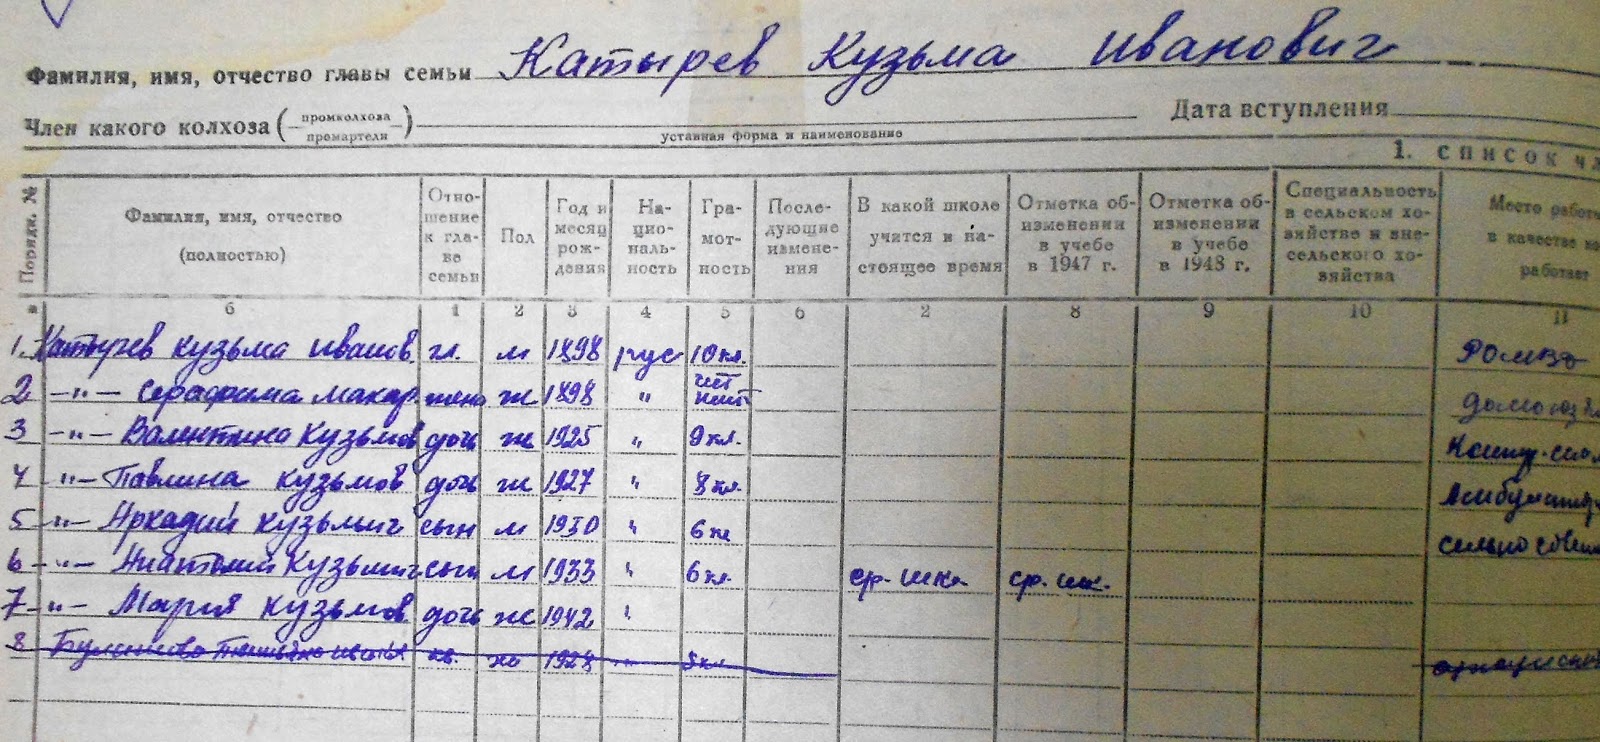 Фамилия, имя, отчество главы семьи Катырев Кузьма Иванович
Член какого колхоза (промколхоза промартели) Дата вступления
уставная форма и наименование
1. СПИСОК ЧЛ
Порядк. № Фамилия, имя, отчество (полностью) Отно-шение к гла-ве семьи Пол Год и месяц рож-дения На-цио-наль-ность Гра-мот-ность После-дующие измене-ния В какой школе учится в на-стоящее время Отметка об-изменении в учебе в 1947 г. Отметка об-изменении в учебе в 1948 г. Специальность в сельском хо-зяйстве и вне-сельского хо-зяйства Место работы в качестве ко работает
а б 1 2 3 4 5 6 2 8 9 10 11
1. Катырев Кузьма Иванов. гл. м 1898 рус 10 кл.
2 -"- Серафима Макар жена ж 1898 "
3 -"- Валентина Кузьмов дочь ж 1925 " 9 кл.
4 -"- Павлина Кузьмов дочь ж 1927 " 8 кл.
5 -"- Аркадий Кузьмич сын м 1930 " 6 кл
6 -"- Анатолий Кузьмич сын м 1933 " 6 кл. ср. шк. ср. шк.
7 -"- Мария Кузьмов дочь ж 1942 "
8 кв. ж 1928 -"- 5 кл